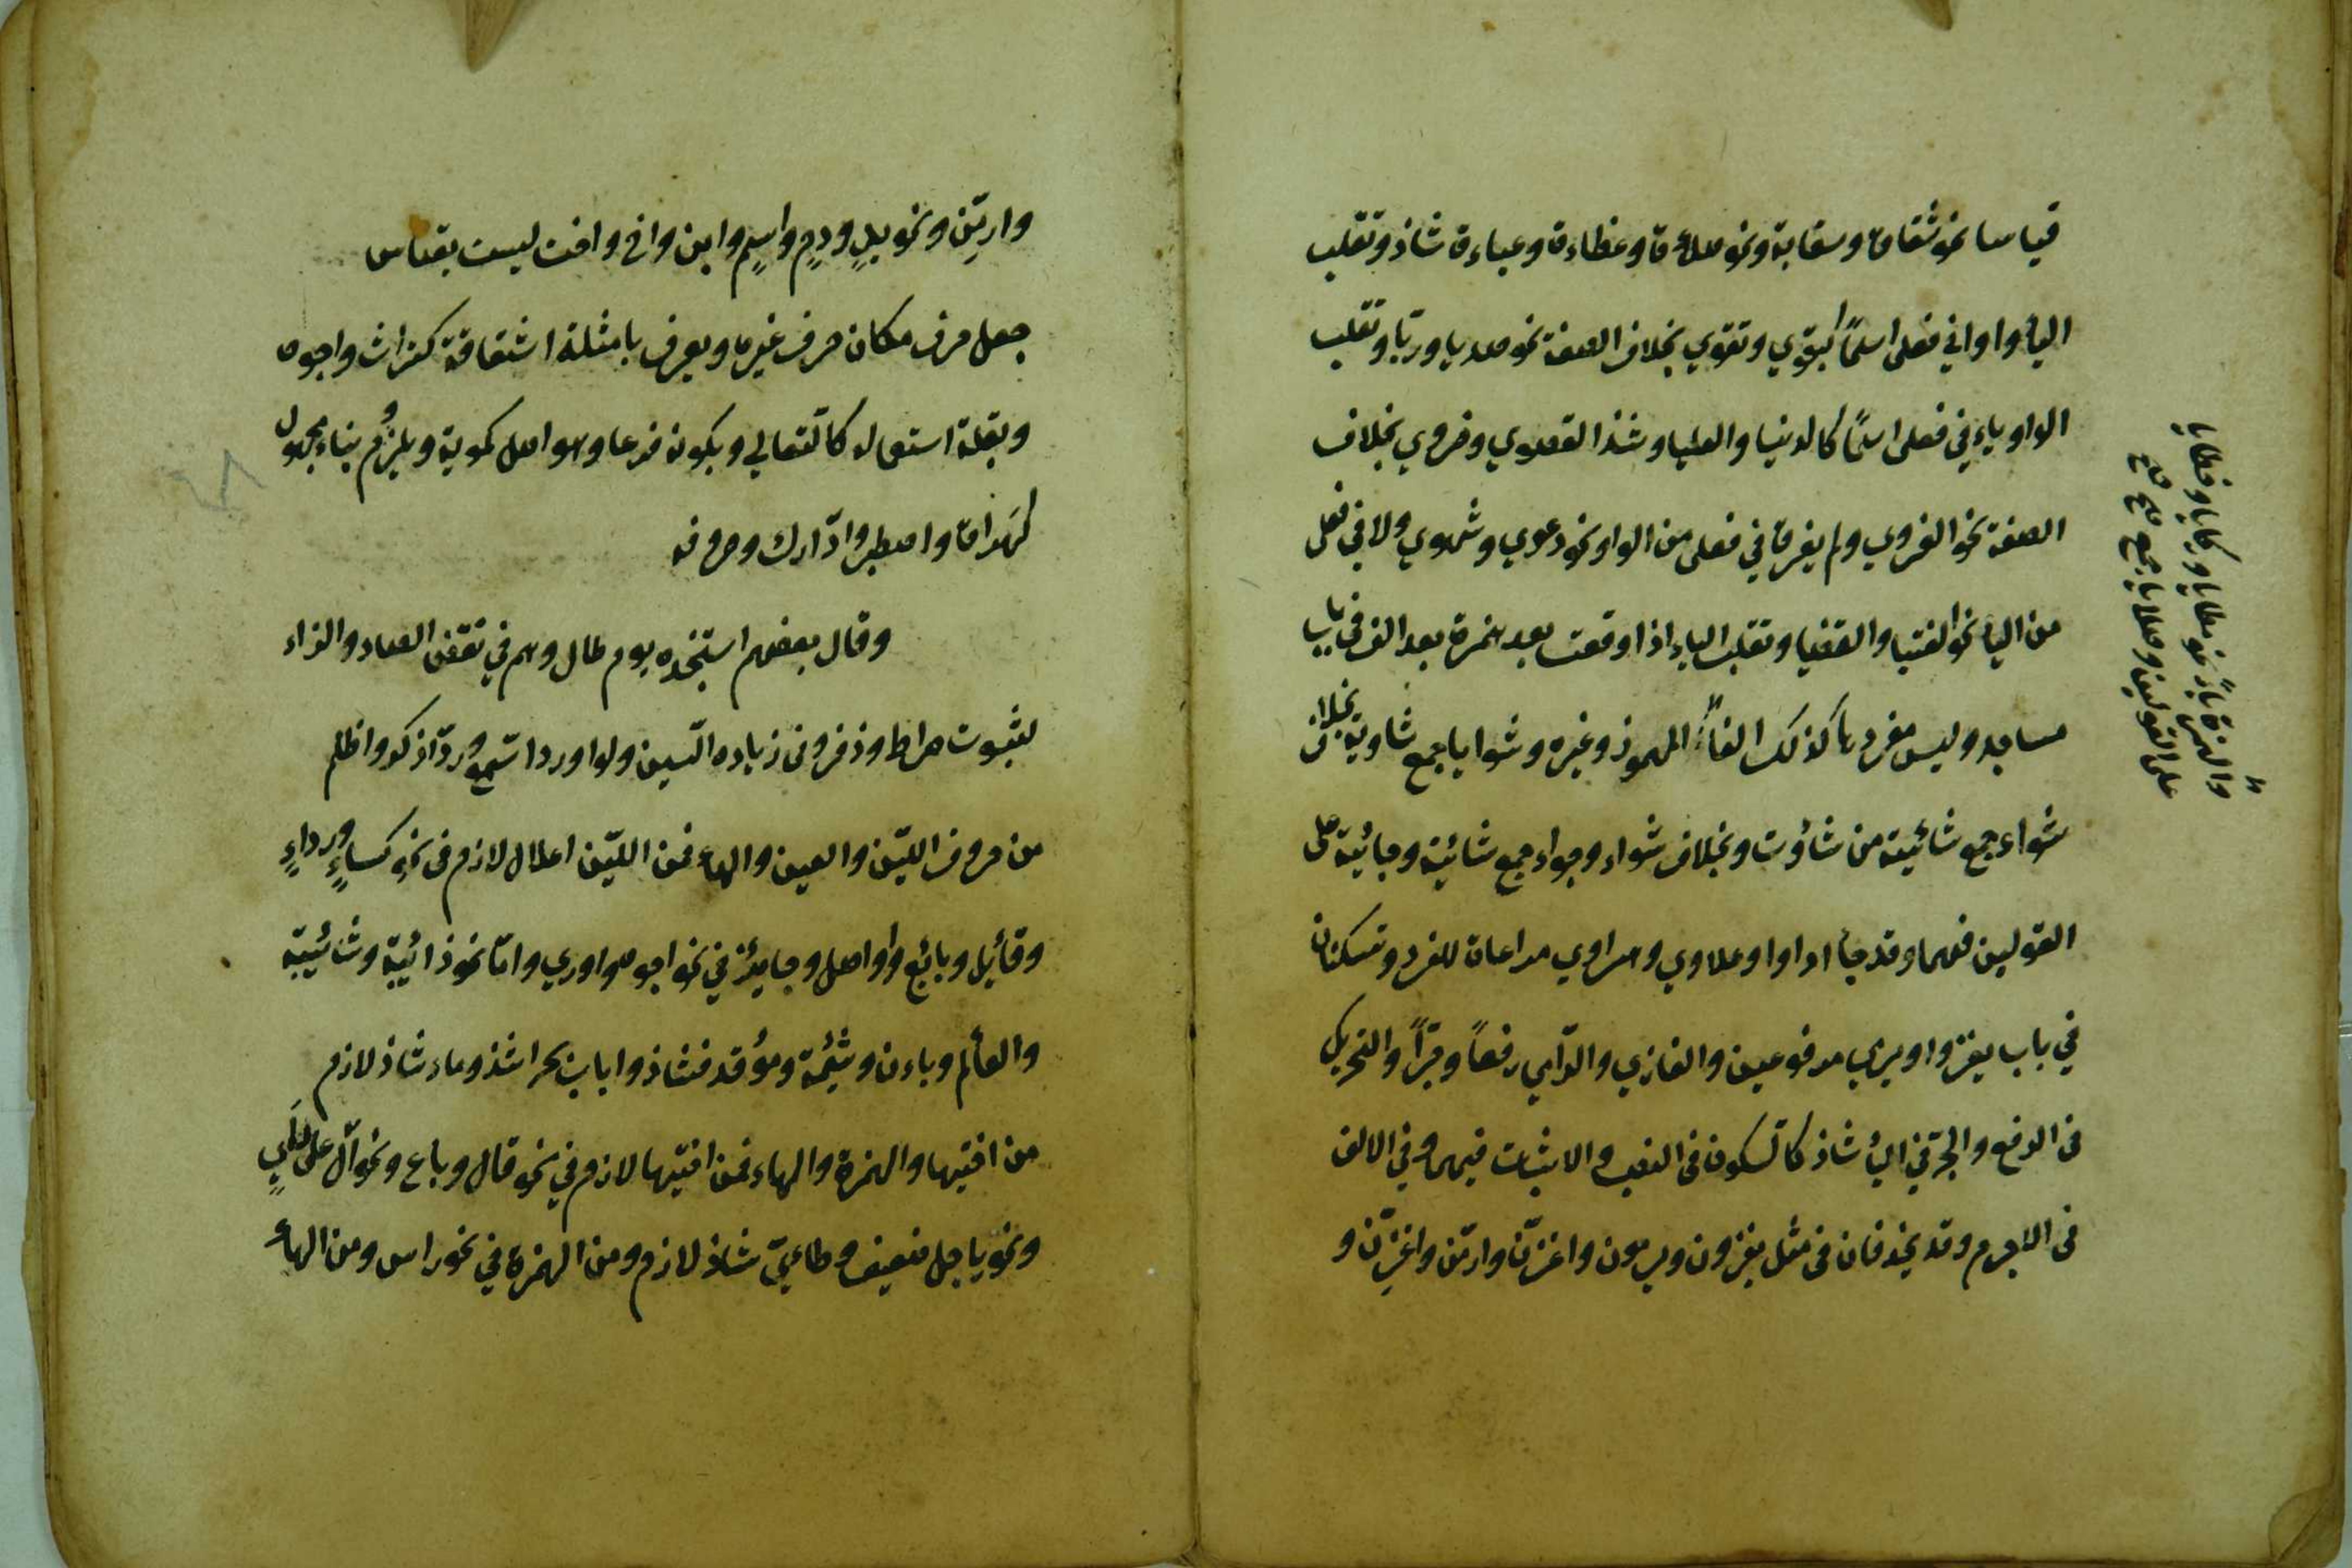 قياسا نحو شقاوة وسقاية ونحو صلاءة وعظاءة وعباءة شاذ وتقلب
الياء واوا في فعلى اسما كبقوي وتقوي بخلاف الصفة نحو صديا وريا وتقلب
الواو ياء في فعلى اسما كالدنيا والعليا وشذ القصوي وحزوي بخلاف
الصفة نحو الغزوي ولم يفرق في فعلى من الواو نحو دعوي وشهوي ولا في فعلى
من الياء نحو الفتيا والقضيا وتقلب الياء اذا وقعت بعد همزة بعد الف في باب
مساجد وليس مفردها كذلك الفا المهموز وغيره وشوايا جمع شاوية بخلاف
شواء جمع شائية من شأوت وبخلاف شواء وجواء جمع شائية وجائية على
القولين فيهما وقد جاء اداوا وعلاوي وهراوي مراعاة للفرد وتسكنان
في باب يغزوا ويرمي مرفوعين والغازي والرامي رفعا وجرا والتحريك
في الرفع والجر في الياء شاذ كالسكون في النصب والاثبات فيهما وفي الالف
في الاجرم وقد يحذفان في مثل يغزون ويرمون واغزن وارمن واغزن و
والهمزة ياء نحو مطايا وركايا وخطايا
على القولين وصلايا جمع
وارمن ونحو يد ودم واسم وابن واخ واخت ليست بقياس
جعل حرف مكان حرف غيره ويعرف بامثلة اشتقاقة كتراث واجوه
وبقلة استعماله كالثعالي وبكونه فرعا وهو اصل كمويه ويلزم بناء مجهول
كهراق واصطبر وادارك وحروفه
وقال بعضهم استنجده يوم طال وهم في نقص الصاد والزاء
لثبوت صراط وزقر وفى زياده السين ولو اورد اسمع ورد اذكر واظلم
من حروف اللين والعين والهاء فمن اللين اعلال لازم فى نحو كساء ورداء
وقائل وبائع واواصل وجايز في نحو اجوه واوري واما نحو دائبة وشائيبة
والعألم وباءز وشئمة ومؤقد فشاذ واباب بحر اشذ وماء شاذ لازم
من اختيها والهمزة والهاء فمن اختيها لازم في نحو قال وباع ونحو آل على رأي
ونحو ياجل ضعيف وطاءي شاذ لازم ومن الهمزة في نحو راس ومن الهاء